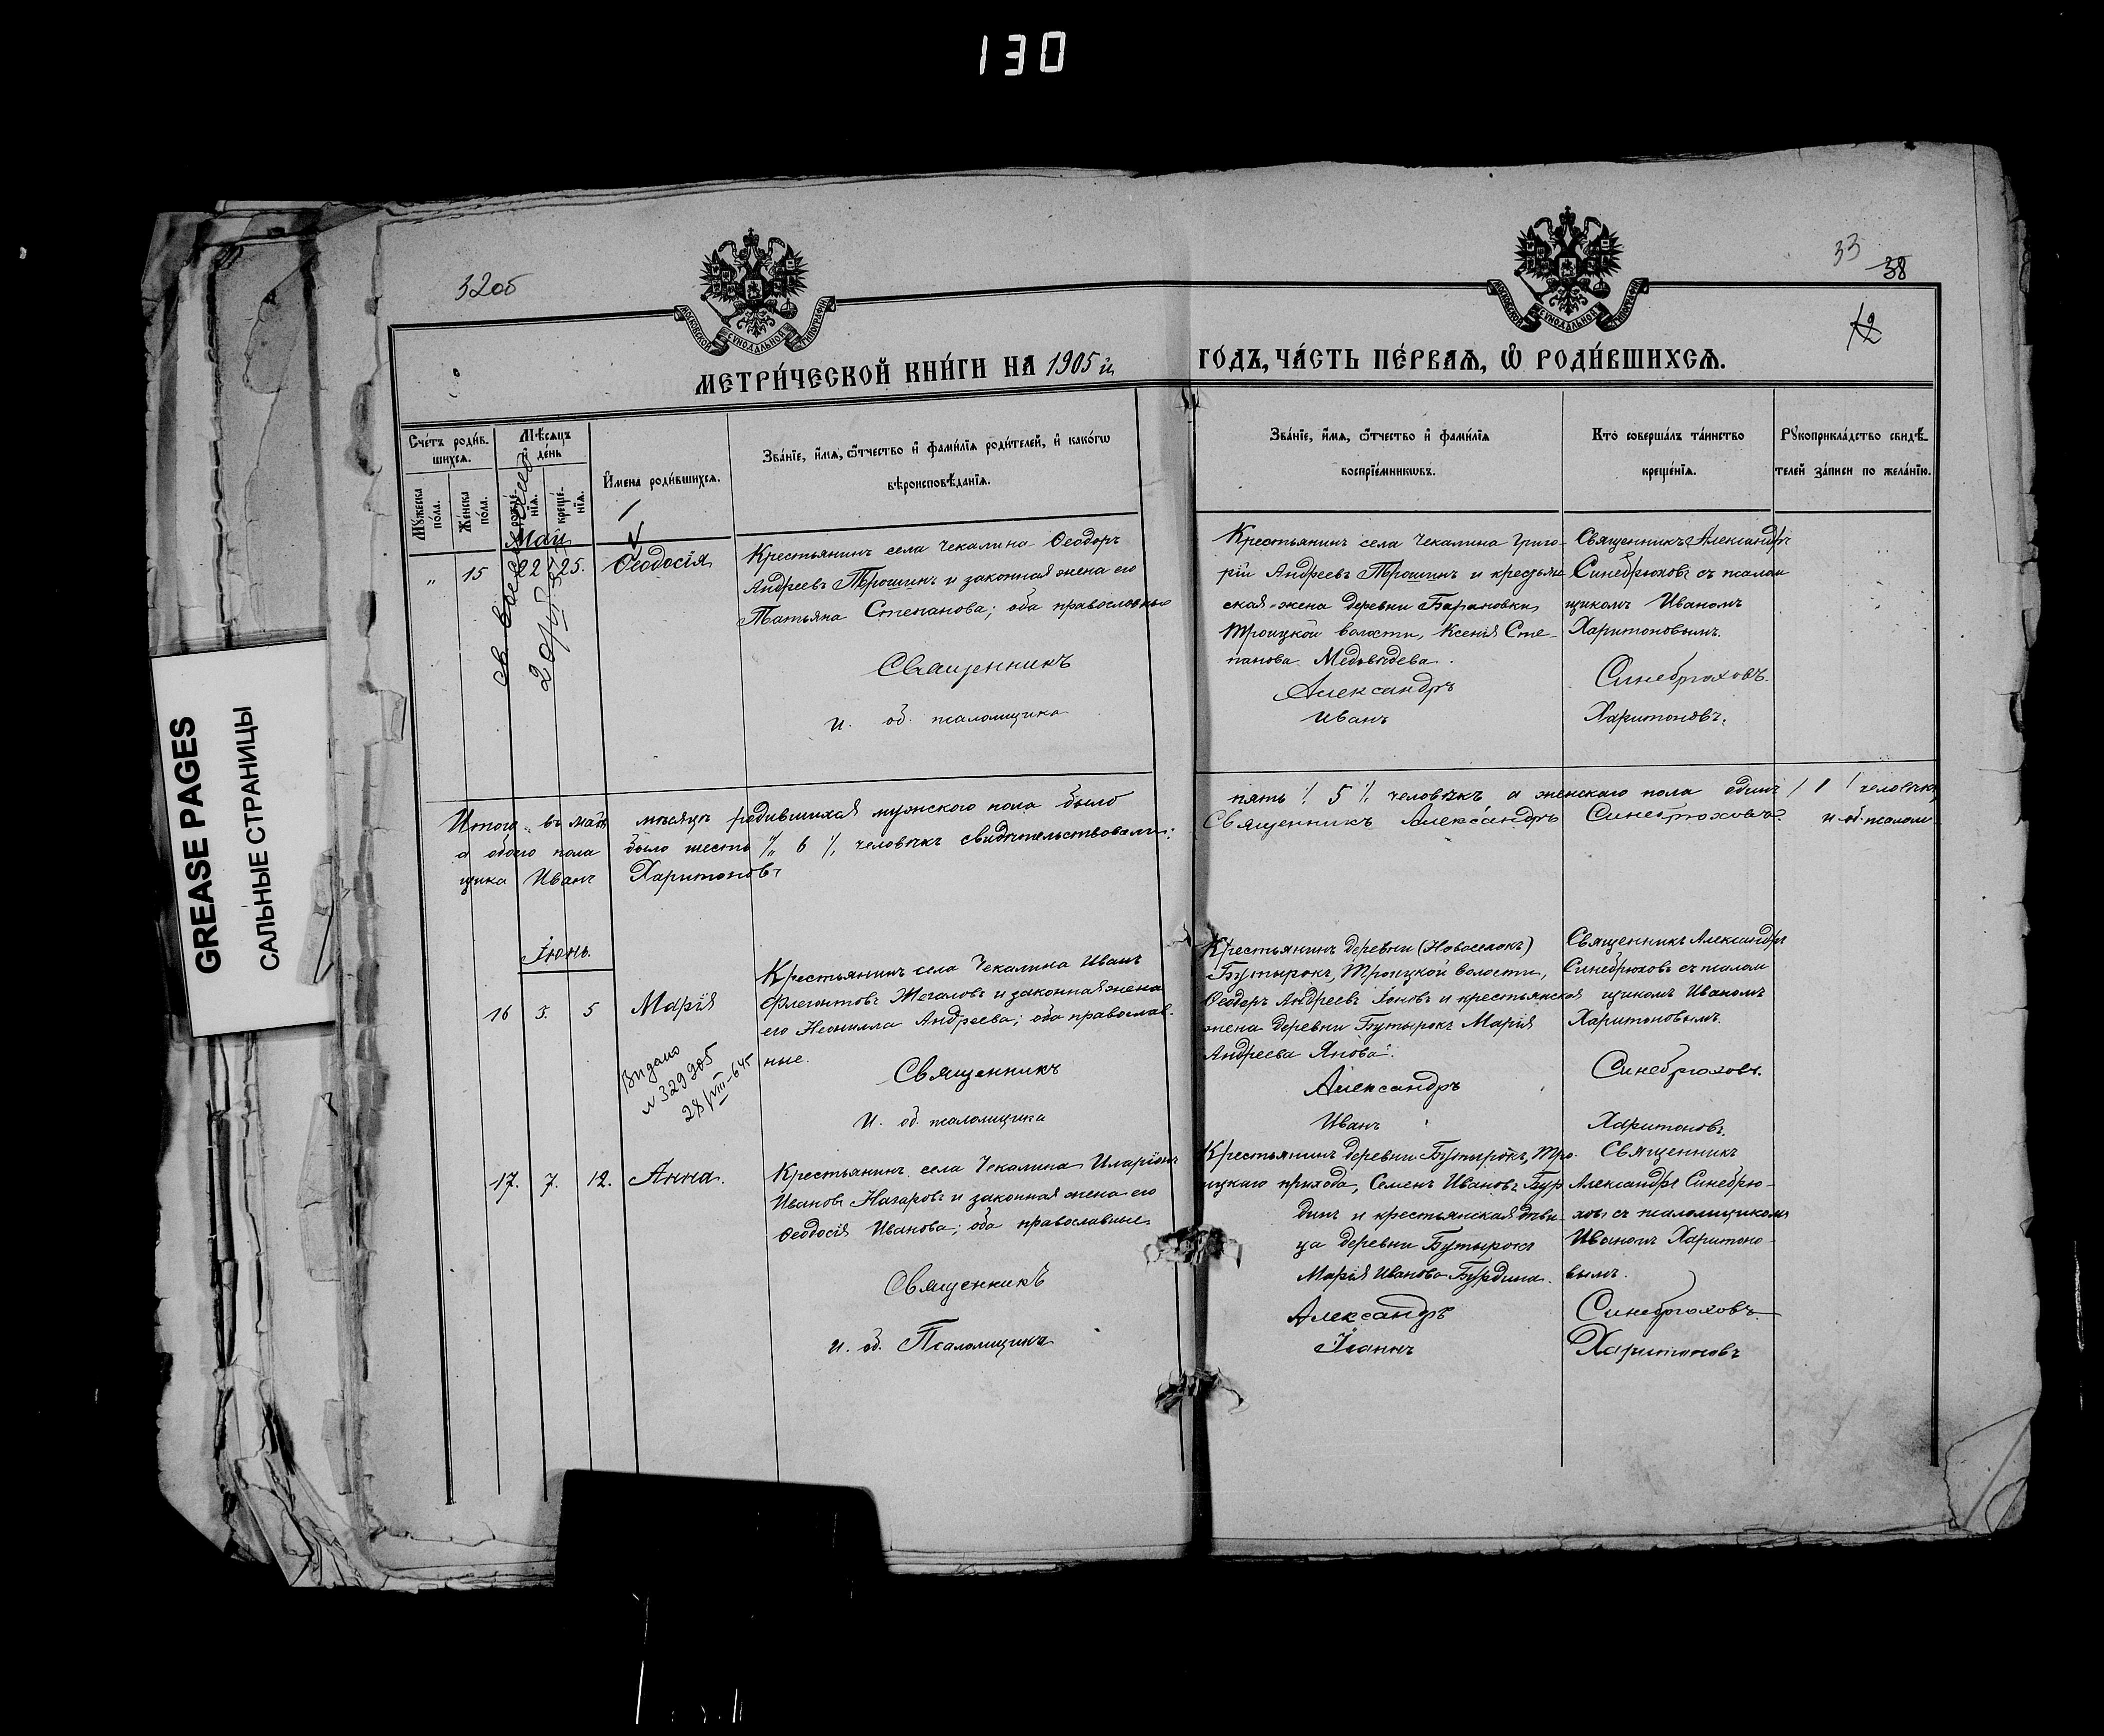 130
32об
33
38
12
МОСКОВСКОЙ СѴНОДАЛЬНОЙ ТИПОГРАФІИ
МОСКОВСКОЙ СѴНОДАЛЬНОЙ ТИПОГРАФІИ
МЕТРИ́ЧЕСКОЙ КНИ́ГИ НА 1905 й
ГО́ДЪ, ЧА́СТЬ ПЕ́РВАѦ, Ѽ РОДИ́ВШИХСѦ.
Сче́тъ роди́в-
шихсѧ.
Мꙋжеска по́ла.
Же́нска по́ла.
Мѣ́сѧцъ и҆ де́нь
рожде́-нїѧ.
креще́-нїѧ.
И҆мена роди́вшихсѧ.
Зва́нїе, и҆́мѧ, ѻ҆́тчество и҆ фами́лїѧ роди́телей, и҆ како́гѡ
вѣроисповѣ́данїѧ.
Зва́нїе, и҆́мѧ, ѻ҆́тчество и҆ фами́лїѧ
воспрїе́мникѡвъ.
Кто̀ соверша́лъ та́инство
креще́нїѧ.
Рꙋкоприкла́дство свидѣ́-
телей за́писи по жела́нїю.
Май
" 15 22 25. Ѳеодосія
Крестьянинъ села Чекалина Ѳеодоръ
Андреевъ Трошинъ и законная жена его
Татьяна Степанова; оба православные
Священникъ
и. об. псаломщика
Крестьянинъ села Чекалина Григо-
рій Андреевъ Трошинъ и крестьян
ская жена деревни Барановки
Троицкой волости, Ксенія Сте-
панова Медвѣдева.
Александръ
Иванъ
Священникъ Александръ
Синебрюховъ съ псалом
щикомъ Иваномъ
Харитоновымъ.
Синебрюховъ.
Харитоновъ.
Итого въ маѣ мѣсяцѣ родившихся мужского пола было
пять % 5 % человѣкъ, а женскаго пола одинъ / 1 / человѣкъ
а обоего пола было шесть % 6 % человѣкъ свидѣтельствовали:
Священникъ Александръ Синебрюховъ. и об. псалом
щика Иванъ Харитоновъ
Іюнь.
16 5. 5 Марія
Выдано
N 329905
28/VIII-645
Крестьянинъ села Чекалина Иванъ
Флегонтовъ Жегаловъ и законная жена
его Неонилла Андреева; оба православ-
ные.
Священникъ
И. об. псаломщика
Крестьянинъ деревни (Новоселокъ)
Бутырокъ, Троицкой волости,
Ѳеодоръ Андреевъ Іоновъ и крестьянская
жена деревни Бутырокъ Марія
Андреева Янова.
Александръ
Иванъ
Священникъ Александръ
Синебрюховъ съ псалом
щикомъ Иваномъ
Харитоновымъ.
Синебрюховъ.
Харитоновъ.
17. 7. 12. Анна.
Крестьянинъ села Чекалина Иларіонъ
Ивановъ Назаровъ и законная жена его
Ѳеодосія Иванова; оба православные
Священникъ
и. об. Псаломщика
Крестьянинъ деревни Бутырокъ, Тро-
ицкаго прихода, Семенъ Ивановъ Бур
динъ и крестьянская дѣви-
ца деревни Бутырокъ
Марія Иванова Бурдина.
Александръ
Іоаннъ
Священникъ
Александръ Синебрю-
ховъ съ псаломщикомъ
Иваномъ Харитоно-
вымъ.
Синебрюховъ
Харитоновъ
GREASE PAGES
САЛЬНЫЕ СТРАНИЦЫ